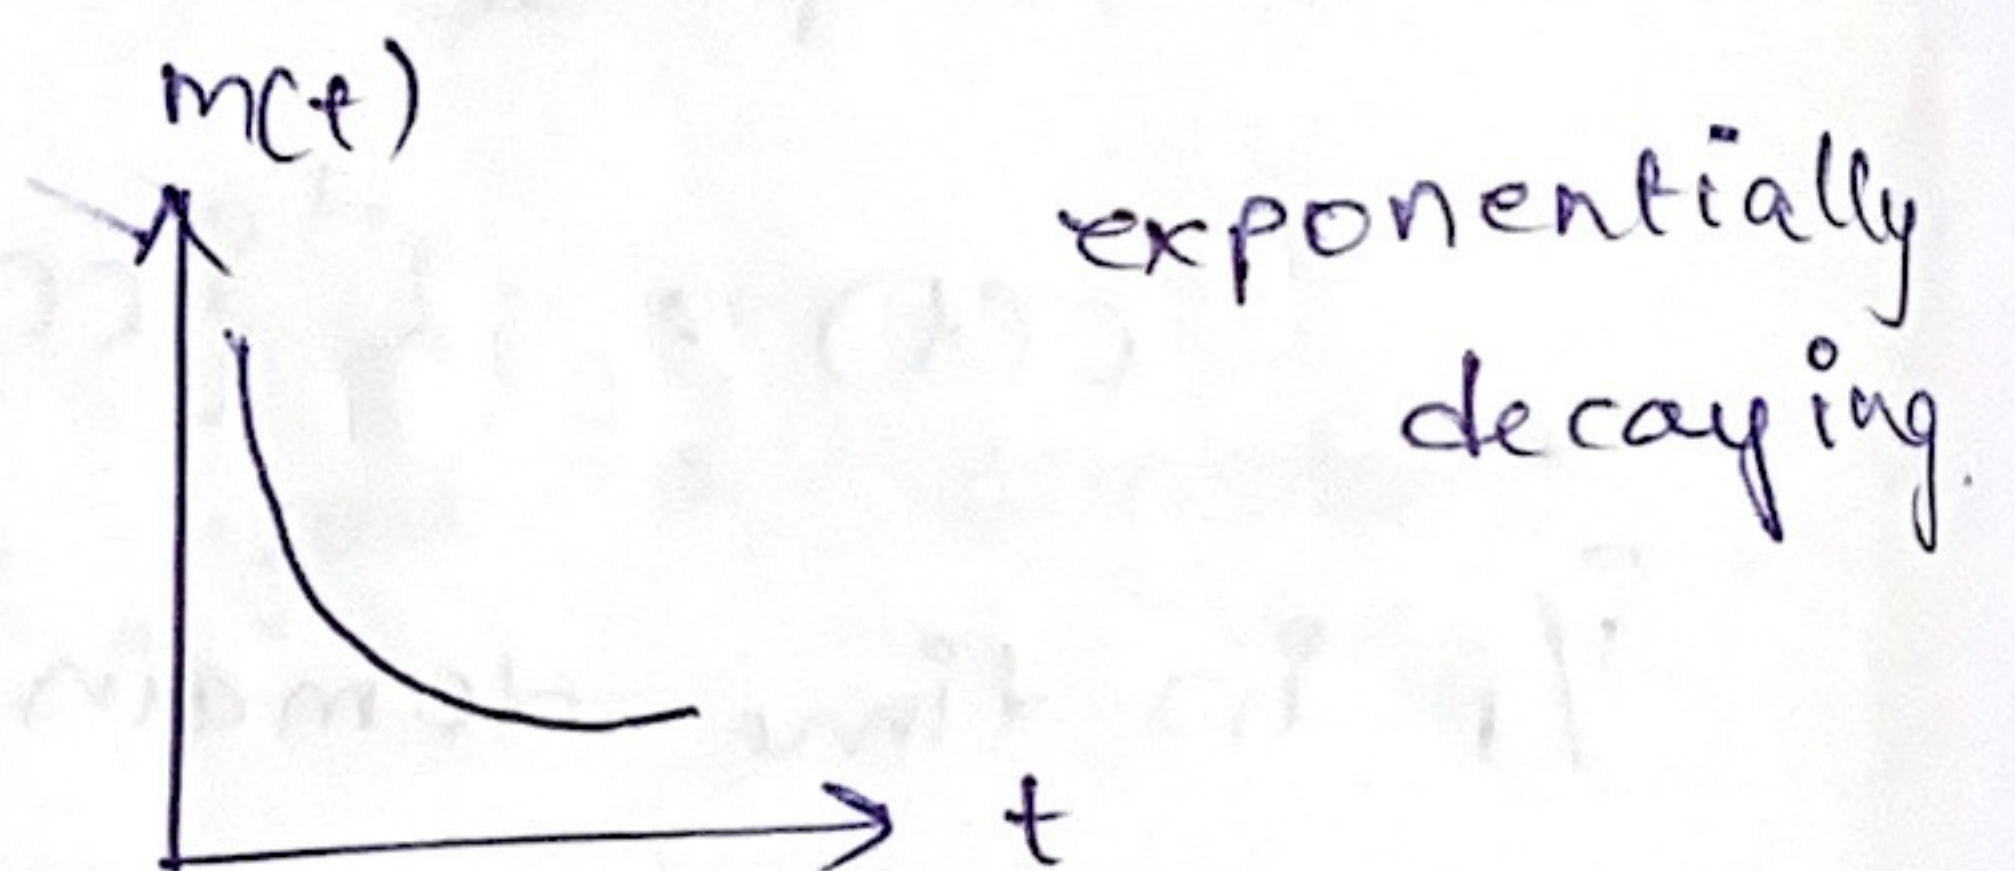 m(t)
exponentially
decaying.
t